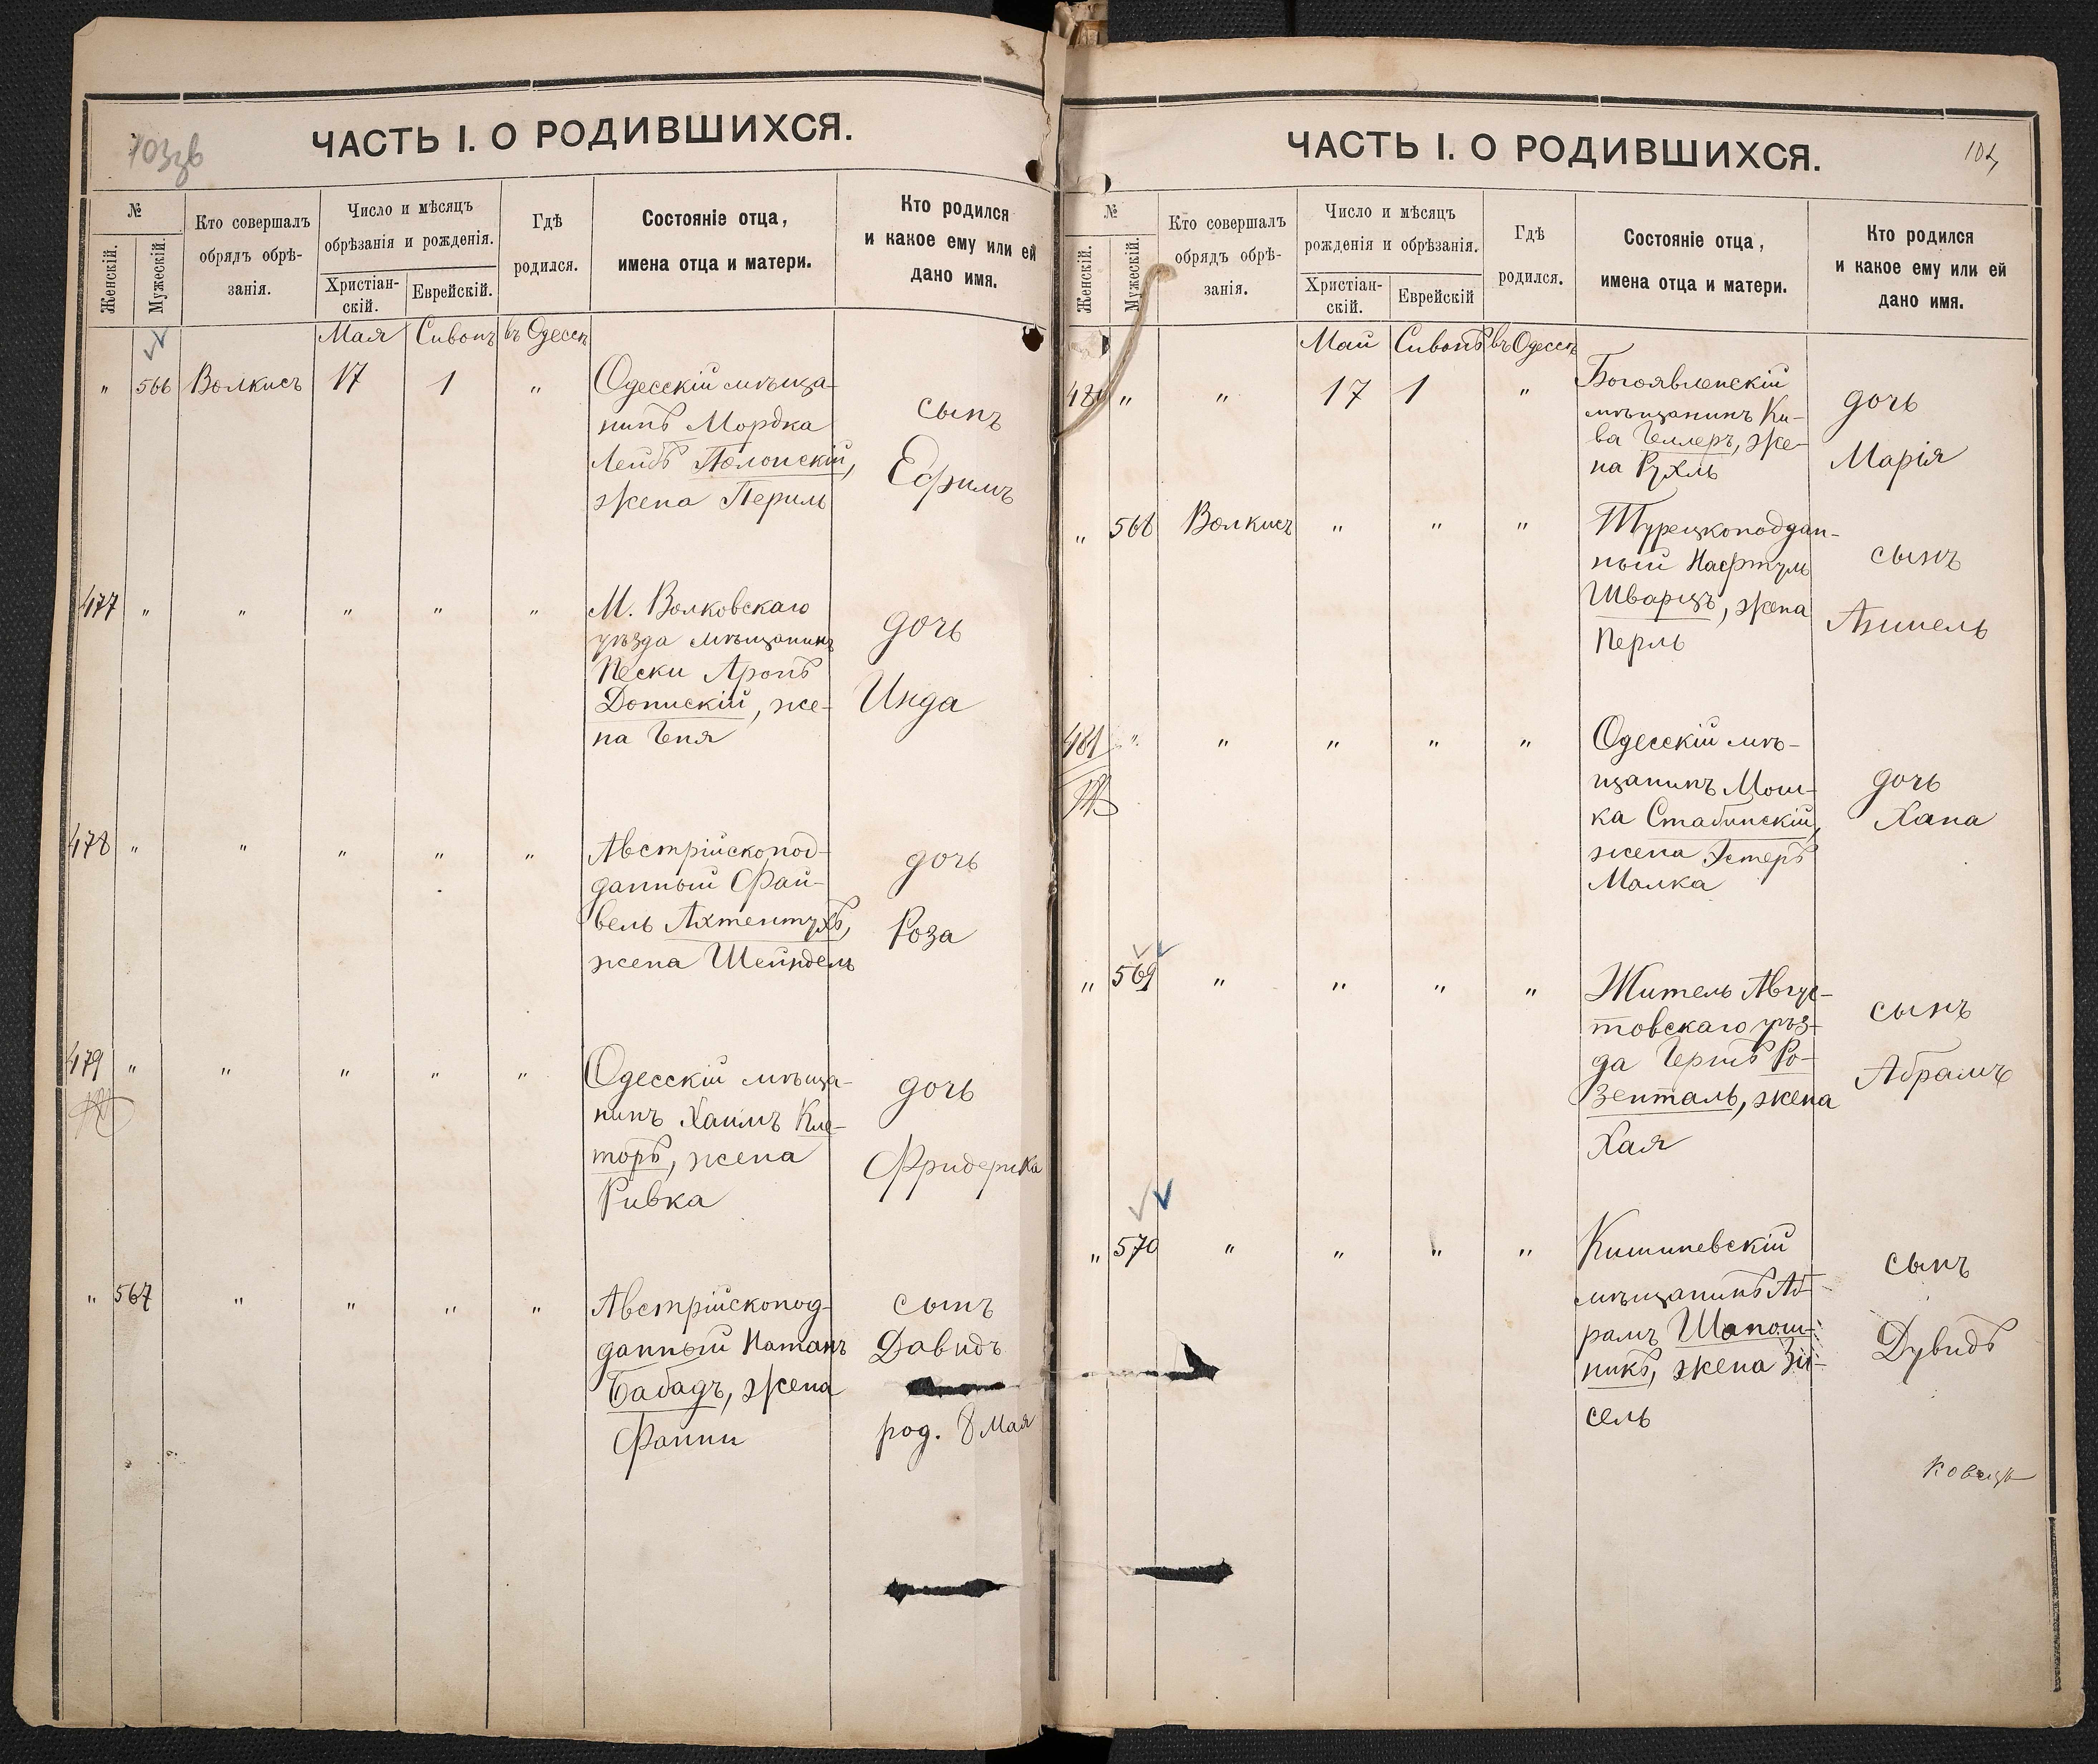 103 зв
ЧАСТЬ I. О РОДИВШИХСЯ.
№
Женскій.
Мужескій.
Кто совершалъ
обрядъ обрѣ-
занія.
Число и мѣсяцъ
обрѣзанія и рожденія.
Христіан-
скій.
Еврейскій.
Гдѣ
родился.
Состояніе отца,
имена отца и матери.
Кто родился
и какое ему или ей
дано имя.
Мая Сивонъ въ Одессѣ
" 566 Волкисъ 17 1 " Одесскій мѣща-
нинъ Мордка
Лейбъ Полонскій,
жена Периль
сынъ
Ефимъ
477 " " " " " М. Волковскаго
уѣзда мѣщанинъ
Пески Аронъ
Донискій, же-
на Геня
дочь
Инда
478 " " " " " Австрійскопод-
данный Фай-
вель Ахтентухъ,
жена Шейндель
дочь
Роза
479 " " " " " Одесскій мѣща-
нинъ Хаимъ Кле-
торъ, жена
Ривка
дочь
Фридерика
" 567 " " " " Австрійскопод-
данный Натанъ
Бабадъ, жена
Фанни
сынъ
Давидъ
род. 8 Мая
104
ЧАСТЬ I. О РОДИВШИХСЯ.
№
Женскій.
Мужескій.
Кто совершалъ
обрядъ обрѣ-
занія.
Число и мѣсяцъ
рожденія и обрѣзанія.
Христіан-
скій.
Еврейскій
Гдѣ
родился.
Состояніе отца,
имена отца и матери.
Кто родился
и какое ему или ей
дано имя.
Май Сивонъ въ Одессѣ
480 " " 17 1 " Богоявленскій
мѣщанинъ Ки-
ва Геллеръ, же-
на Рухль
дочь
Марія
" 568 Волкисъ " " " Турецкоподдан-
ный Нафтуль
Шварцъ, жена
Перль
сынъ
Аншель
481 " " " " " Одесскій мѣ-
щанинъ Мош-
ка Стабинскій,
жена Эстеръ
Малка
дочь
Хана
" 569 " " " " Житель Авгус-
товскаго уѣз-
да Герцъ Ро-
зенталь, жена
Хая
сынъ
Абрамъ
" 570 " " " " Кишиневскій
мѣщанинъ Аб-
рамъ Шапош-
никъ, жена Зи-
сель
сынъ
Дувидъ